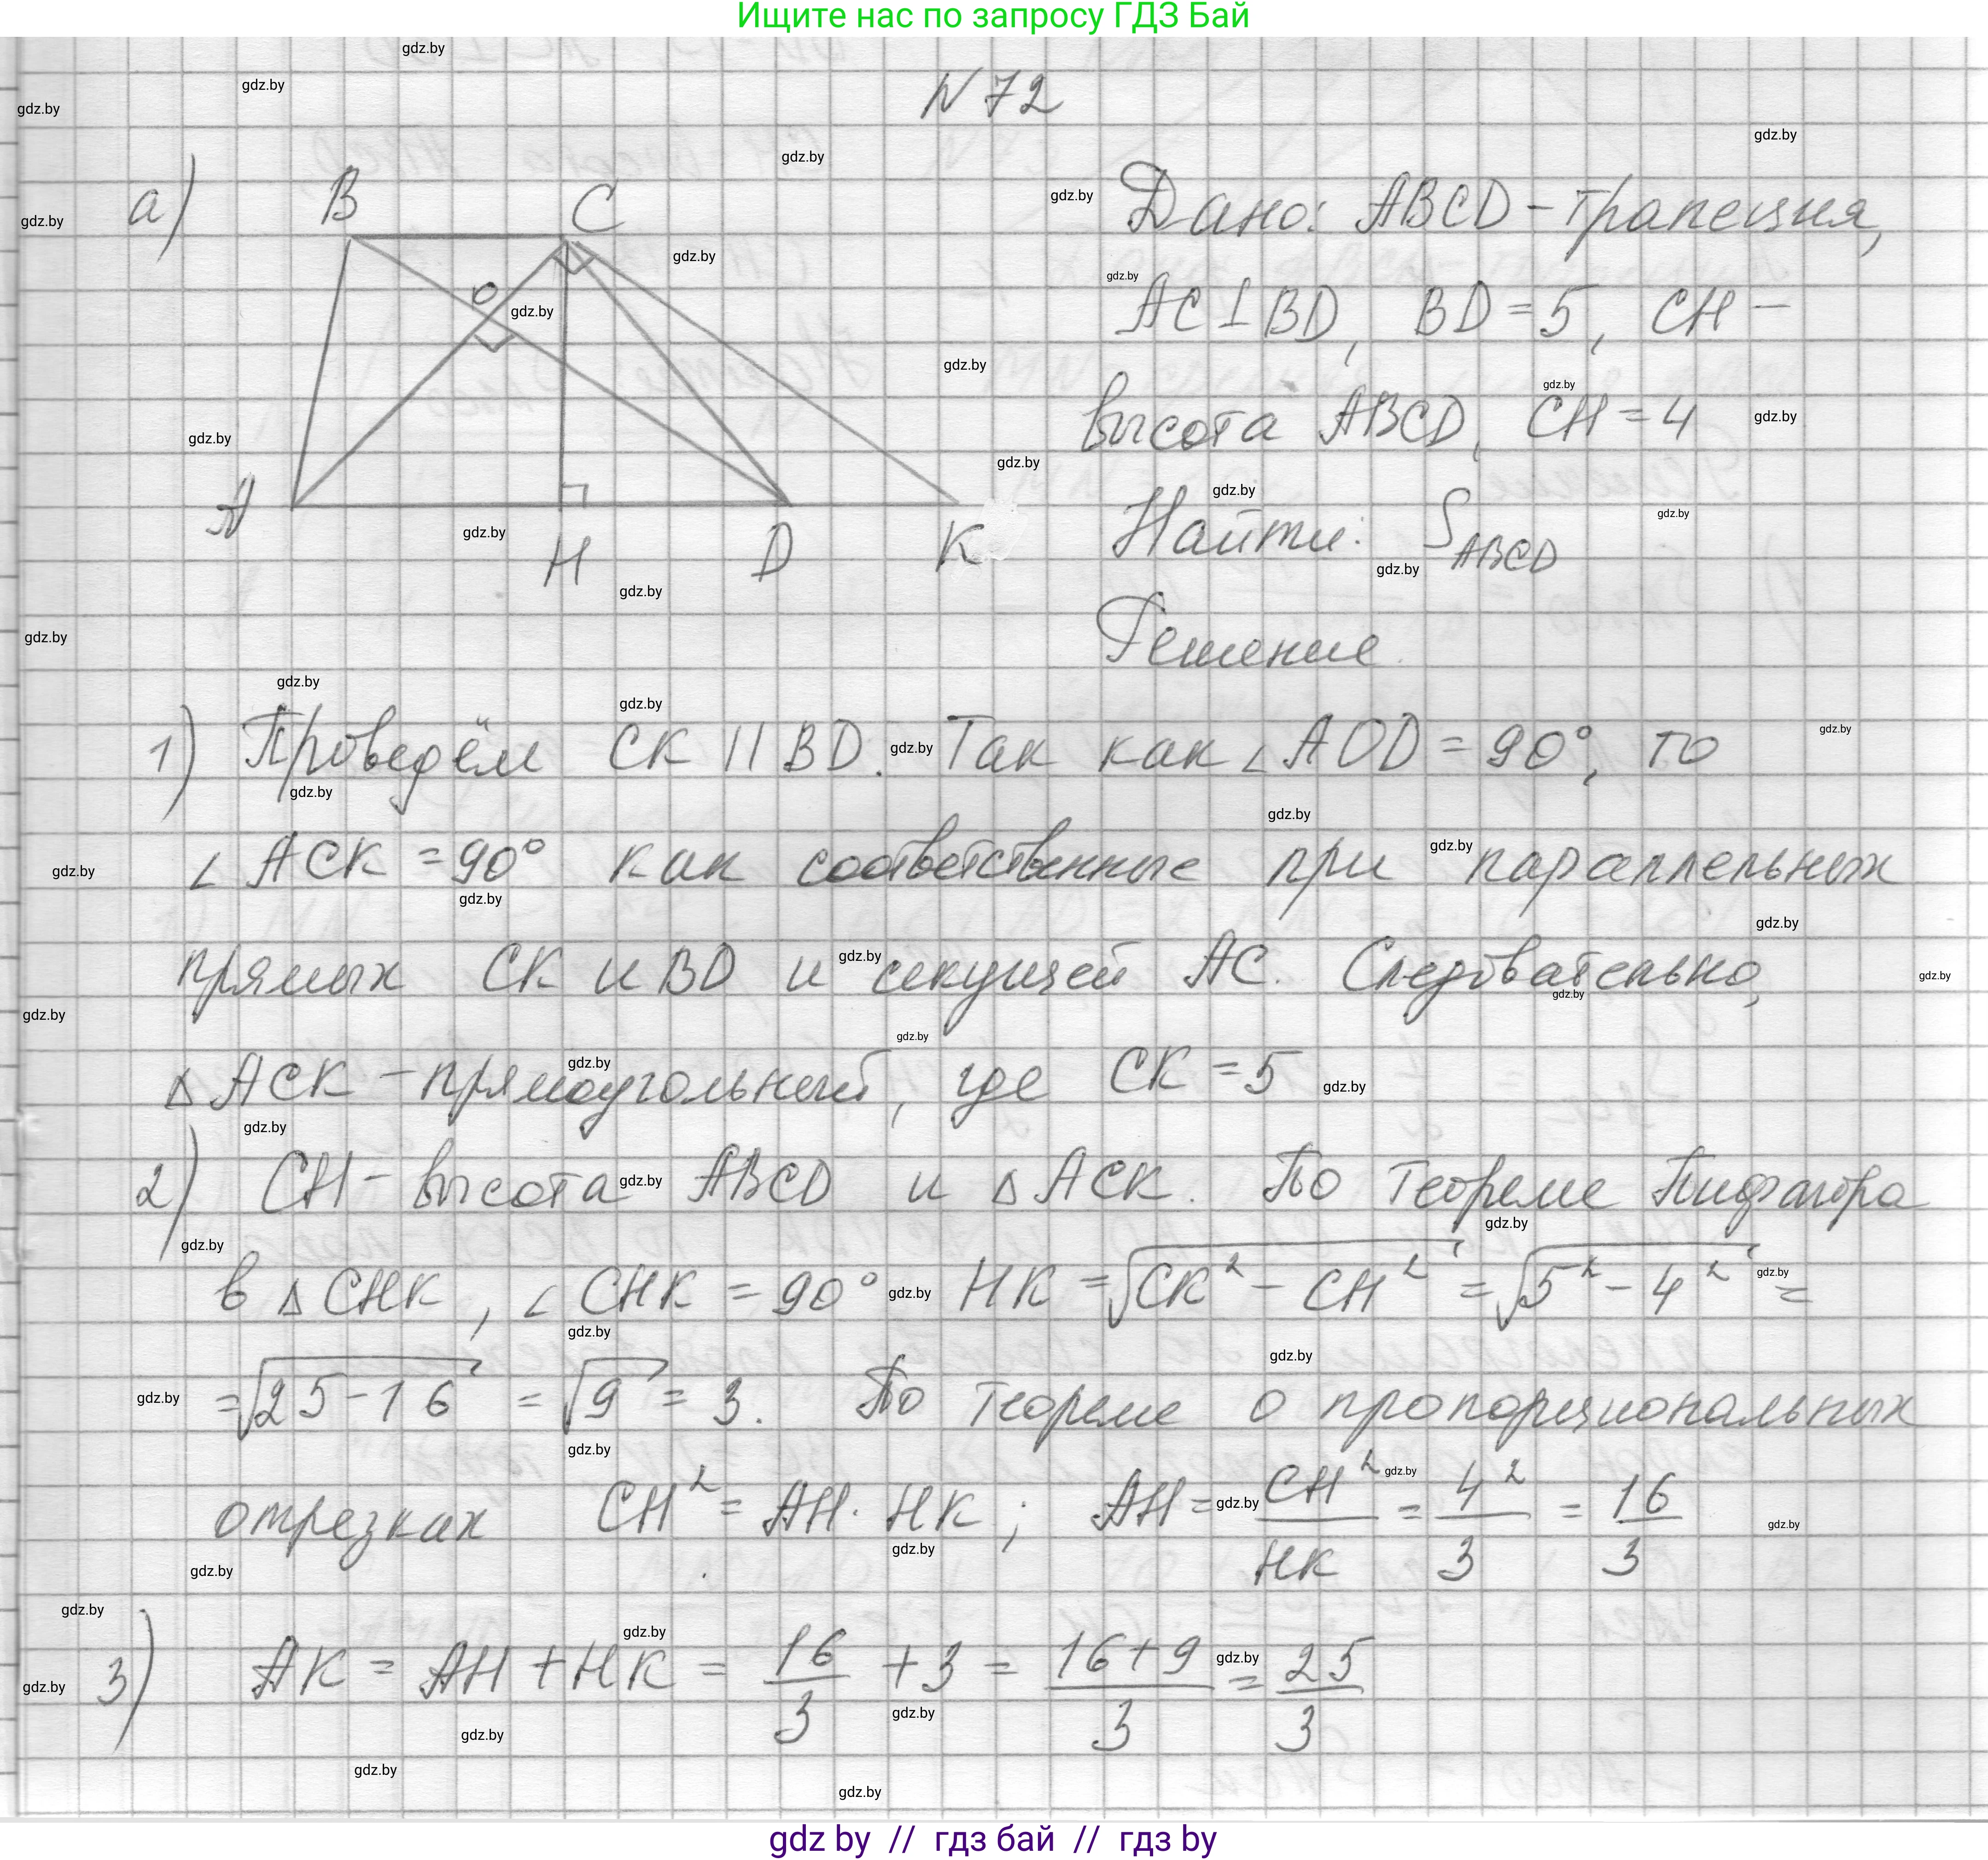 Ищите нас по запросу ГДЗ Бай
N 72
а)
B
C
O
A
H
D
K
Дано: ABCD - трапеция,
AC ⊥ BD, BD = 5, CH -
высота ABCD, CH = 4
Найти: S_ABCD
Решение.
1) Проведём CK || BD. Так как ∠ AOD = 90°, то
∠ ACK = 90° как соответственные при параллельных
прямых CK и BD и секущей AC. Следовательно,
Δ ACK - прямоугольный, где CK = 5
2) CH - высота ABCD и Δ ACK. По теореме Пифагора
в Δ CHK, ∠ CHK = 90° HK = √(CK² - CH²) = √(5² - 4²) =
= √(25 - 16) = √9 = 3. По теореме о пропорциональных
отрезках CH² = AH · HK; AH = CH²/HK = 4²/3 = 16/3
3) AK = AH + HK = 16/3 + 3 = (16 + 9)/3 = 25/3
gdz by // гдз бай // гдз by